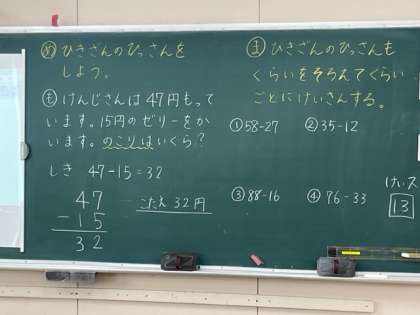 め ひきざんのひっさんを
しよう。
も けんじさんは 47円もって
います。15円のゼリーをか
います。のこりはいくら?
しき 47-15=32
47
-15
32
こたえ 32円
ま ひきざんのひっさんも
くらいをそろえてくらい
ごとにけいさんする。
①58-27 ②35-12
③88-16 ④76-33
けいス
13